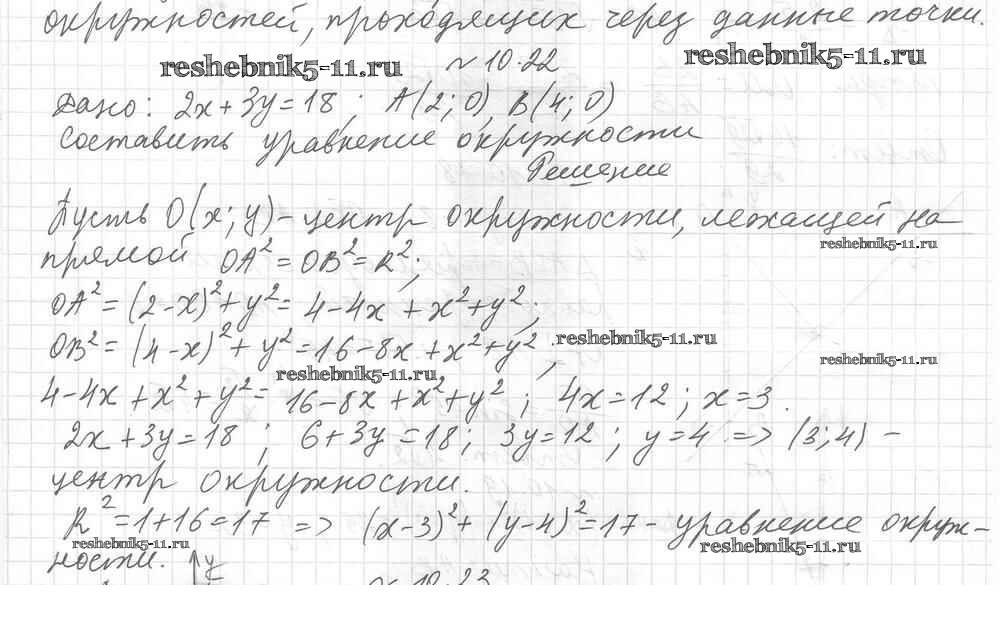 окружностей, проходящих через данные точки.
reshebnik5-11.ru № 10.22 reshebnik5-11.ru
Дано: 2x + 3y = 18; A(2; 0), B(4; 0)
Составить уравнение окружности
Решение
Пусть O(x; y) - центр окружности, лежащей на
reshebnik5-11.ru
прямой OA² = OB² = R²;
OA² = (2-x)² + y² = 4 - 4x + x² + y²;
OB² = (4-x)² + y² = 16 - 8x + x² + y²; reshebnik5-11.ru
reshebnik5-11.ru
reshebnik5-11.ru
4 - 4x + x² + y² = 16 - 8x + x² + y²; 4x = 12; x = 3.
2x + 3y = 18; 6 + 3y = 18; 3y = 12; y = 4 => (3; 4) -
центр окружности.
R² = 1 + 16 = 17 => (x-3)² + (y-4)² = 17 - уравнение окруж-
reshebnik5-11.ru reshebnik5-11.ru
ности. y
№ 10.23